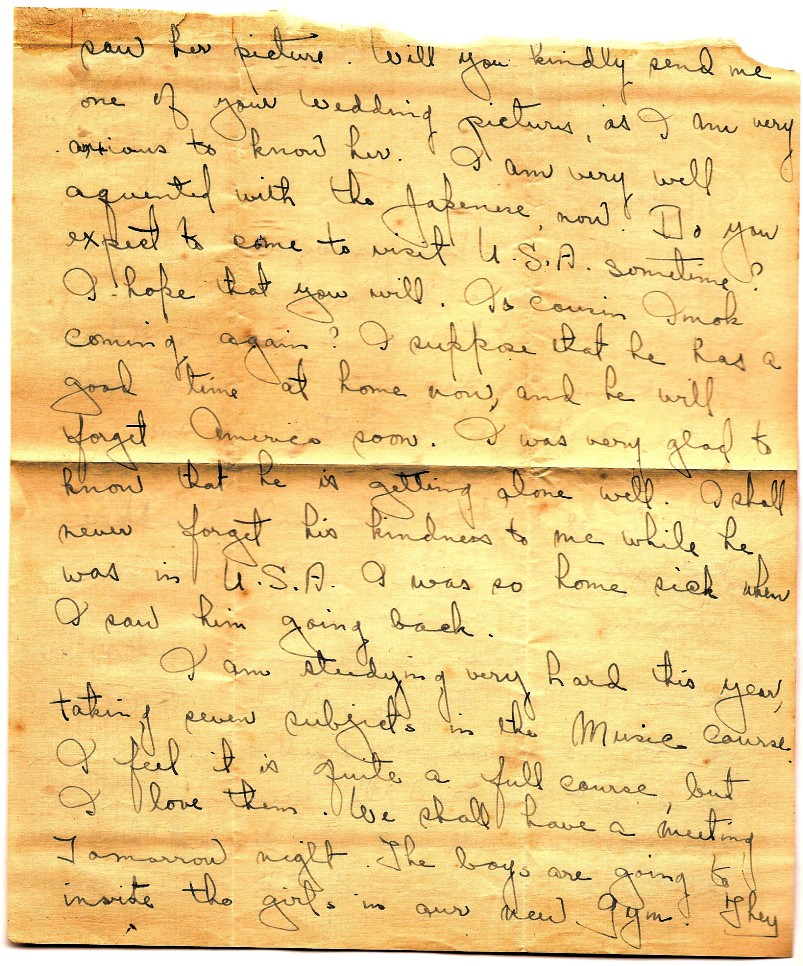 saw her picture. Will you kindly send me
one of your Wedding pictures, as I am very
anxious to know her. I am very well
aquented with the Japenese, now. Do you
expect to come to visit U.S.A. sometime?
I hope that you will. Is cousin Imok
coming again? I suppose that he has a
good time at home now, and he will
forget America soon. I was very glad to
know that he is getting alone well. I shall
never forget his kindness to me while he
was in U.S.A. I was so home sick when
I saw him going back.
I am studying very hard this year,
taking seven subjects in the Music course.
I feel it is quite a full course, but
I love them. We shall have a meeting
Tomorrow night. The boys are going to
invite the girls in our new Gym. They